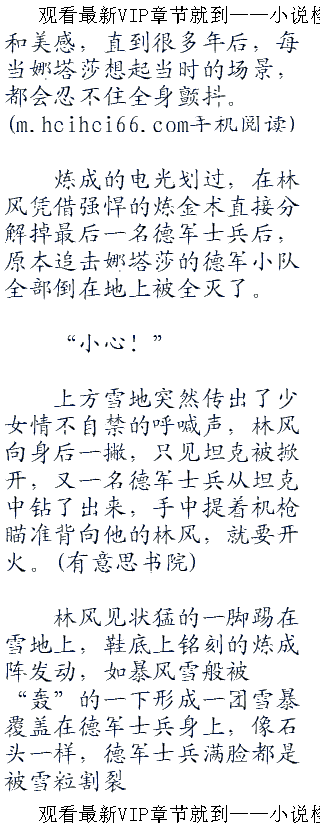 观看最新VIP章节就到——小说检
和美感，直到很多年后，每
当娜塔莎想起当时的场景，
都会忍不住全身颤抖。
(m.hcihci66.com手机阅读)
炼成的电光划过，在林
风凭借强悍的炼金术直接分
解掉最后一名德军士兵后，
原本追击娜塔莎的德军小队
全部倒在地上被全灭了。
“小心！”
上方雪地突然传出了少
女情不自禁的呼喊声，林风
向身后一撇，只见坦克被掀
开，又一名德军士兵从坦克
中钻了出来，手中提着机枪
瞄准背向他的林风，就要开
火。(有意思书院)
林风见状猛的一脚踢在
雪地上，鞋底上铭刻的炼成
阵发动，如暴风雪般被
“轰”的一下形成一团雪暴
覆盖在德军士兵身上，像石
头一样，德军士兵满脸都是
被雪粒割裂
观看最新VIP章节就到——小说检